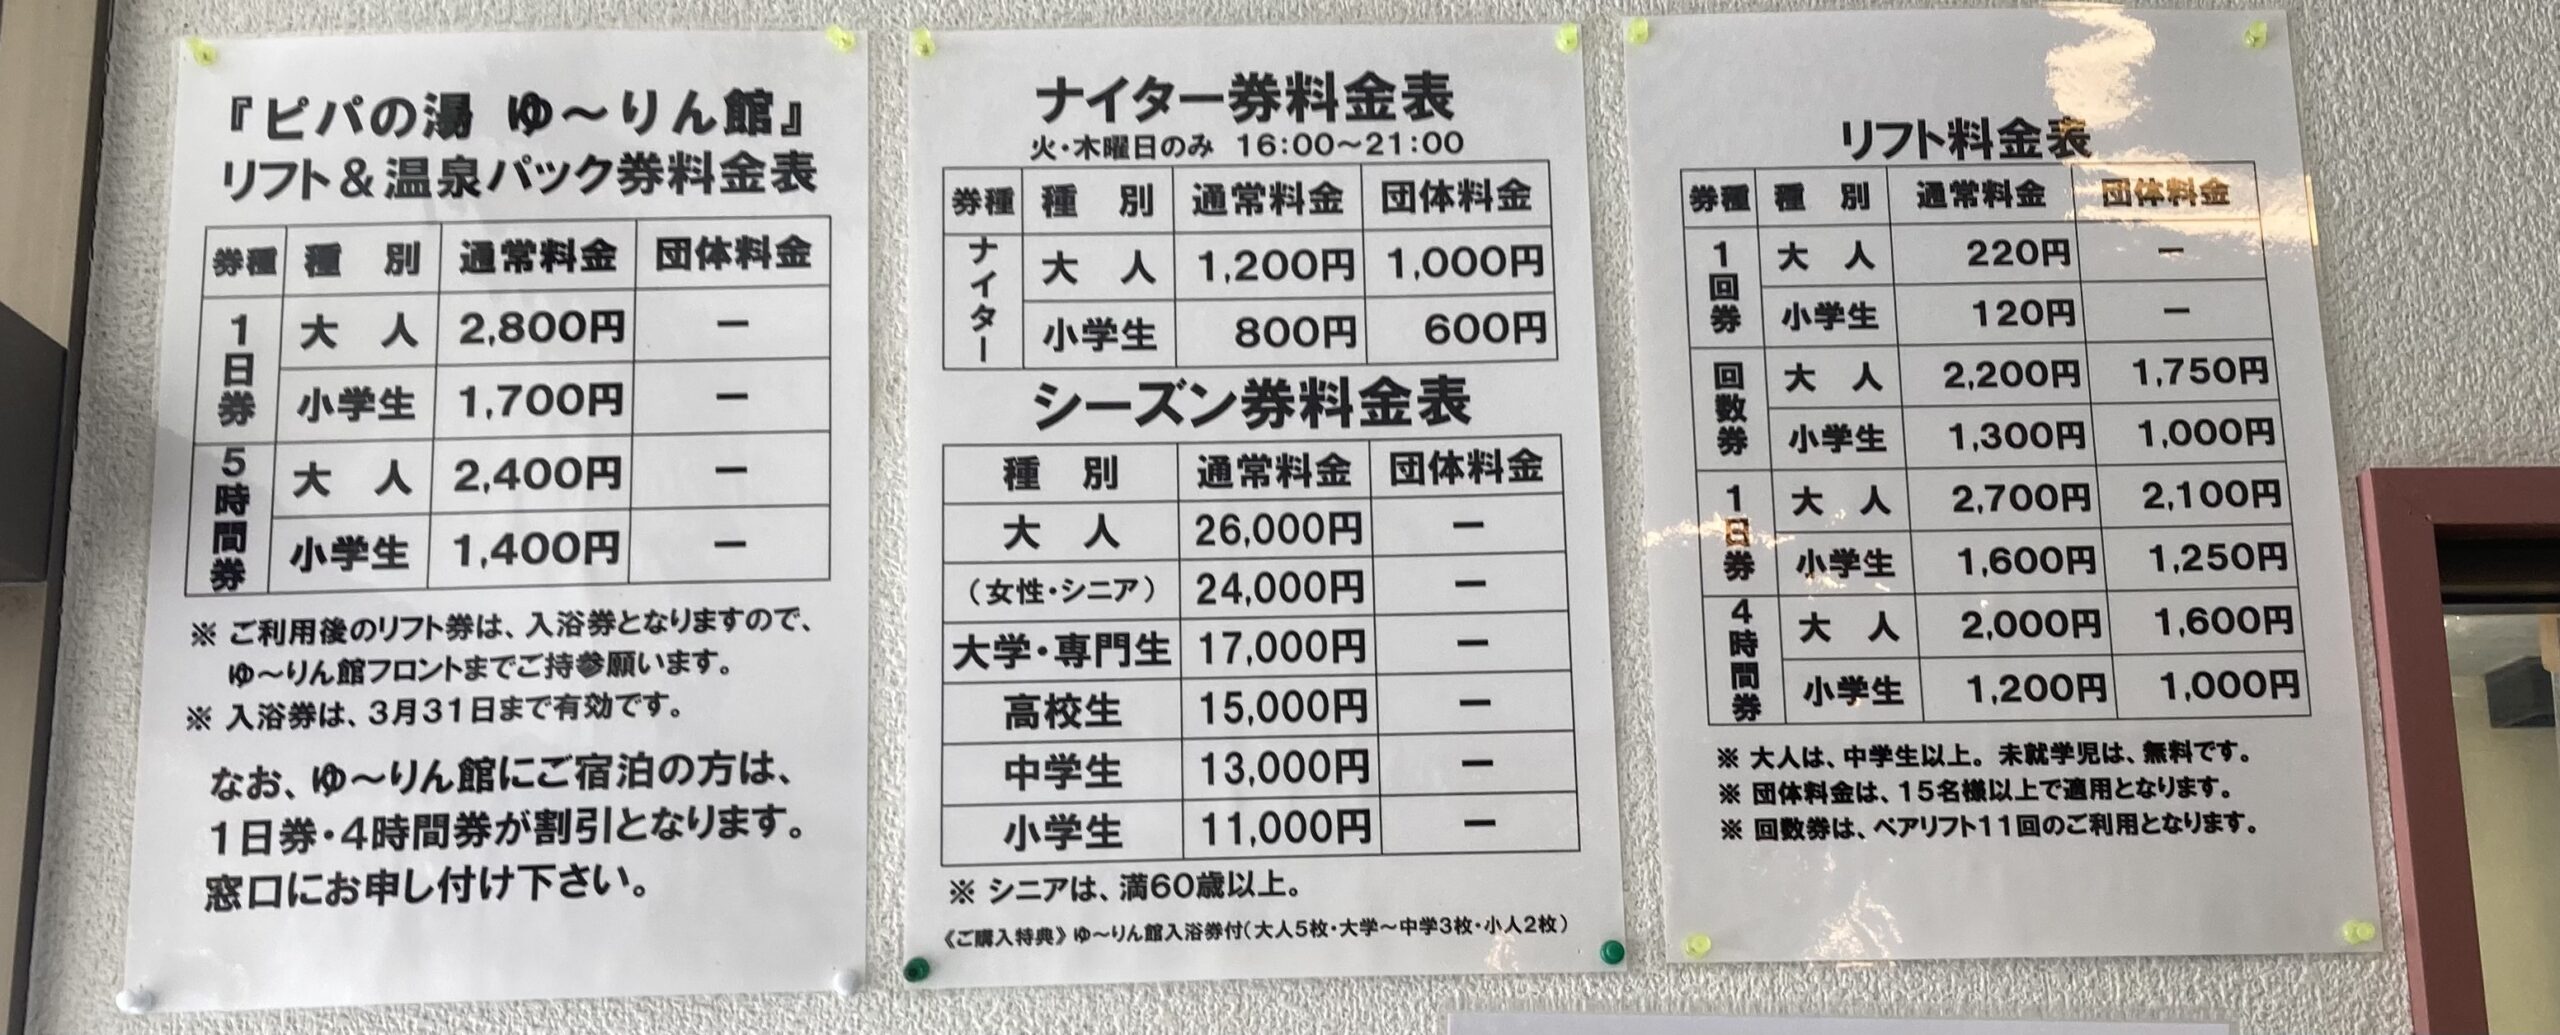 『ピパの湯 ゆ～りん館』
リフト＆温泉パック券料金表
券種 種別 通常料金 団体料金
1日券 大人 2,800円 ー
小学生 1,700円 ー
5時間券 大人 2,400円 ー
小学生 1,400円 ー
※ ご利用後のリフト券は、入浴券となりますので、
ゆ～りん館フロントまでご持参願います。
※ 入浴券は、3月31日まで有効です。
なお、ゆ～りん館にご宿泊の方は、
1日券・4時間券が割引となります。
窓口にお申し付け下さい。
ナイター券料金表
火・木曜日のみ 16:00～21:00
券種 種別 通常料金 団体料金
ナイター 大人 1,200円 1,000円
小学生 800円 600円
シーズン券料金表
種別 通常料金 団体料金
大人 26,000円 ー
（女性・シニア） 24,000円 ー
大学・専門生 17,000円 ー
高校生 15,000円 ー
中学生 13,000円 ー
小学生 11,000円 ー
※ シニアは、満60歳以上。
《ご購入特典》ゆ～りん館入浴券付（大人5枚・大学～中学3枚・小人2枚）
リフト料金表
券種 種別 通常料金 団体料金
1回券 大人 220円 ー
小学生 120円 ー
回数券 大人 2,200円 1,750円
小学生 1,300円 1,000円
1日券 大人 2,700円 2,100円
小学生 1,600円 1,250円
4時間券 大人 2,000円 1,600円
小学生 1,200円 1,000円
※ 大人は、中学生以上。未就学児は、無料です。
※ 団体料金は、15名様以上で適用となります。
※ 回数券は、ペアリフト11回のご利用となります。